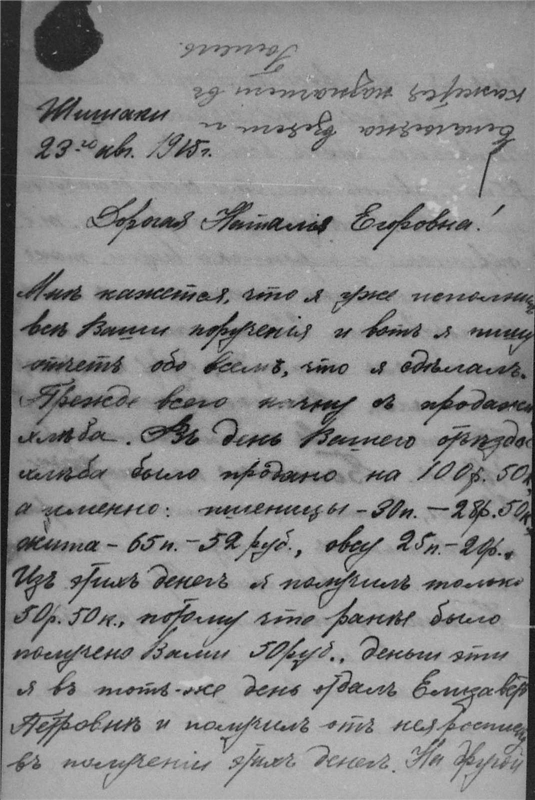 Шишаки
23-го авг. 1915г.
Дорогая Наталія Егоровна!
Мнѣ кажется, что я уже исполнилъ
всѣ Ваши порученія и вотъ я пишу
отчетъ обо всемъ, что я сдѣлалъ.
Прежде всего начну съ продажи
хлѣба. Въ день Вашего отъѣзда
хлѣба было продано на 100р. 50к,
а именно: пшеницы - 30п. - 28р. 50к
жита - 65п. - 52 руб., овсу 25п - 20р.
Изъ этихъ денег я получилъ только
50р. 50к., потому что раньше было
получено Вами 50руб., деньги эти
я въ тотъ-же день отдалъ Елизаветѣ
Петровнѣ и получилъ отъ нея росписку
въ полученіи этихъ денег. На другой
кажется назначет въ
Гомель.